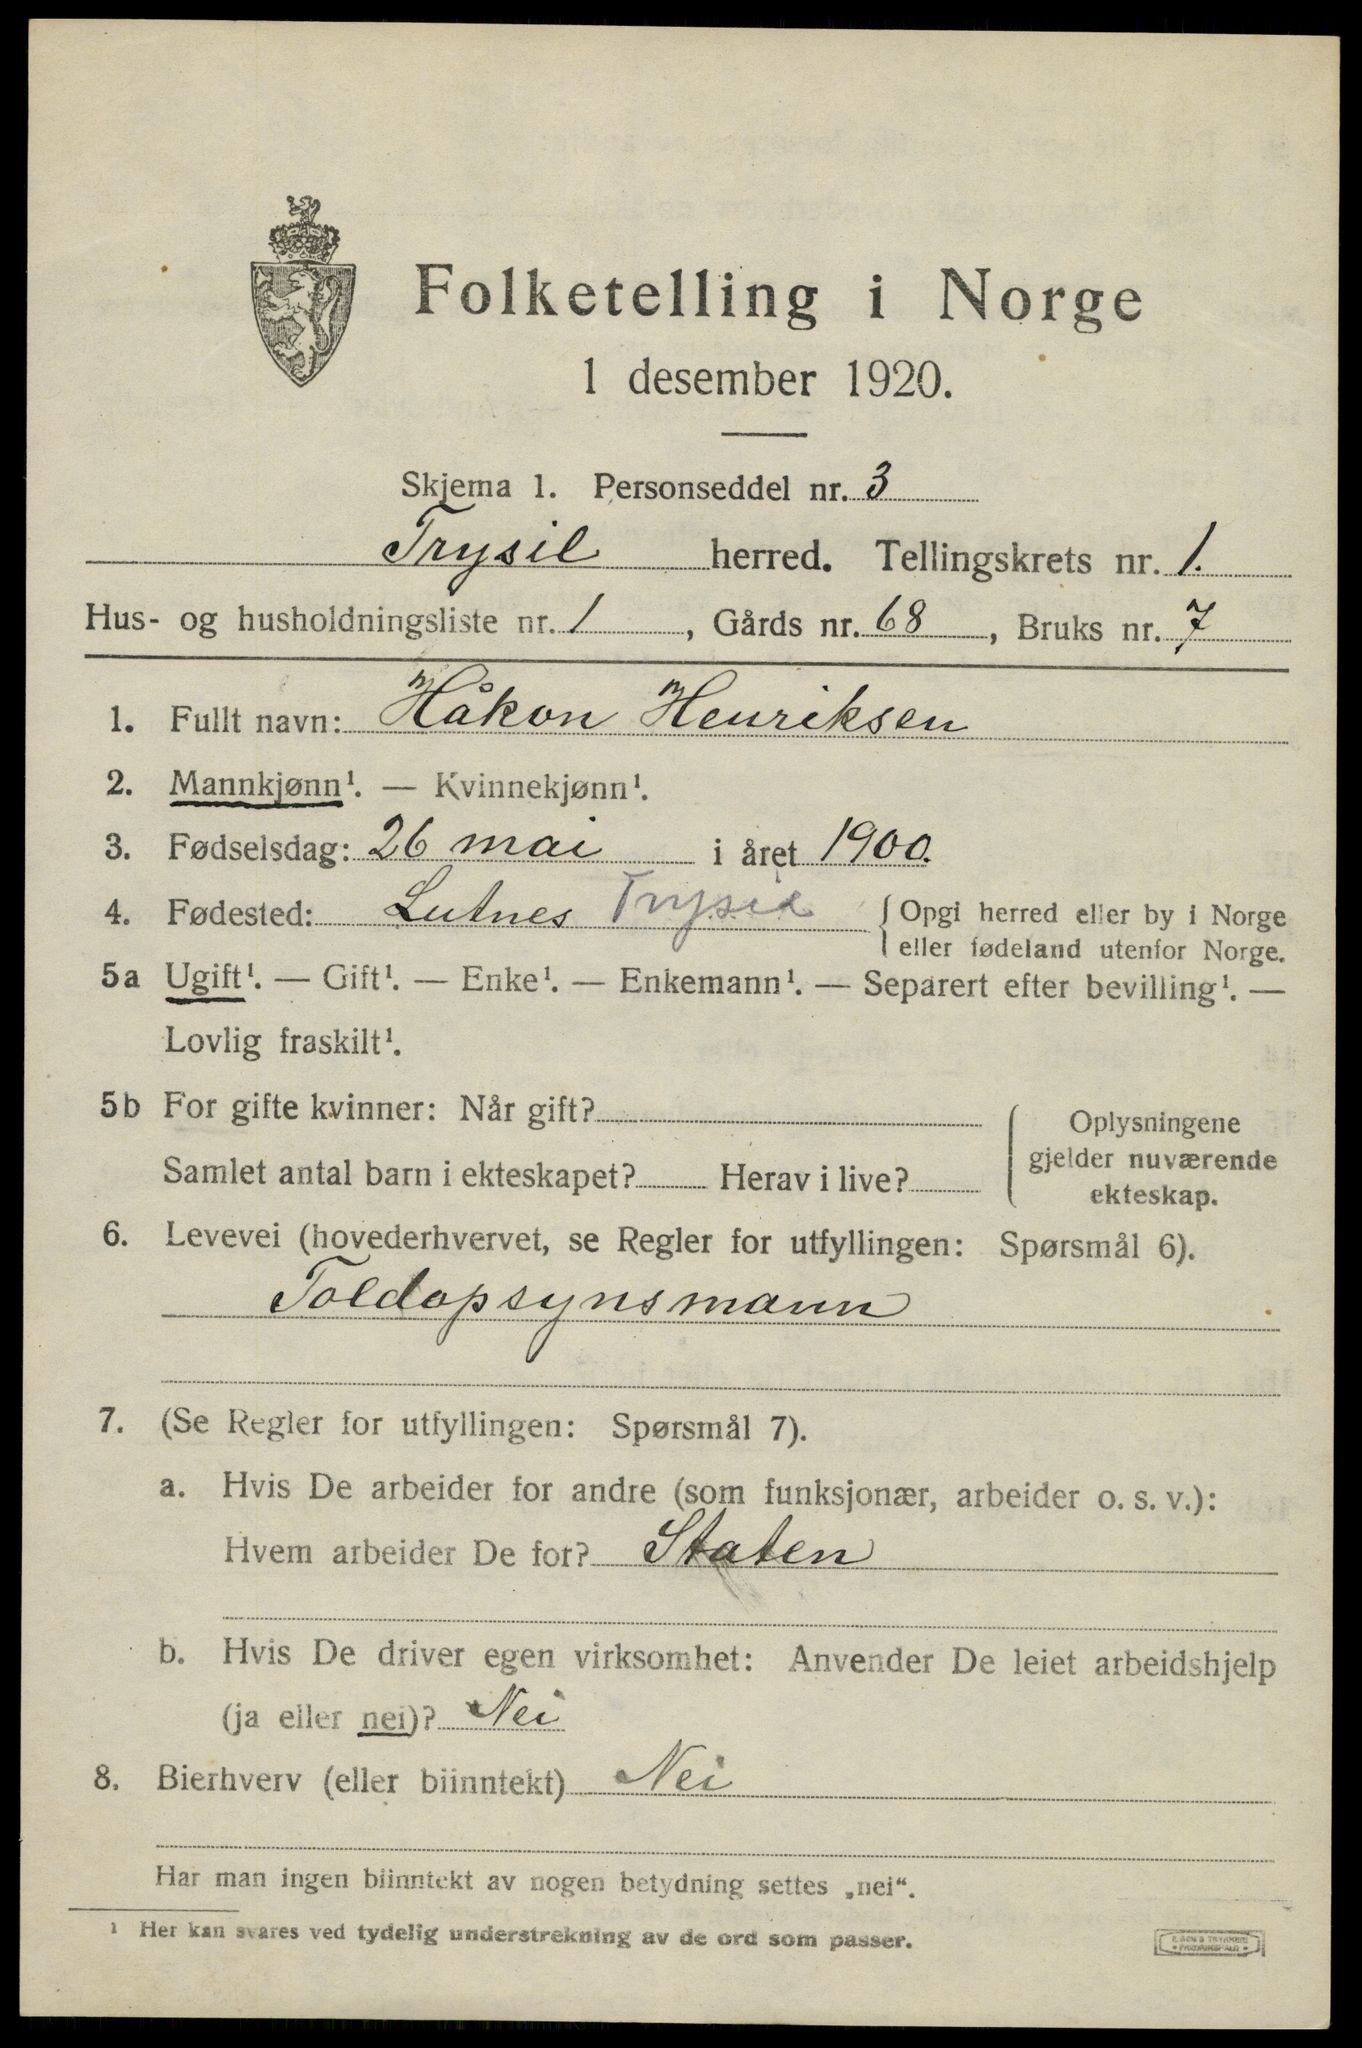 Folketelling i Norge
1 desember 1920.
Skjema 1. Personseddel nr. 3
Trysil herred. Tellingskrets nr. 1.
Hus- og husholdningsliste nr. 1, Gårds nr. 68, Bruks nr. 7
1. Fullt navn: Håkon Henriksen
2. Mannkjønn¹. — Kvinnekjønn¹.
3. Fødselsdag: 26 mai i året 1900.
4. Fødested: Lutnes Trysil { Opgi herred eller by i Norge
eller fødeland utenfor Norge.
5a Ugift¹. — Gift¹. — Enke¹. — Enkemann¹. — Separert efter bevilling¹. —
Lovlig fraskilt¹.
5b For gifte kvinner: Når gift?
Samlet antal barn i ekteskapet? Herav i live?
Oplysningene
gjelder nuværende
ekteskap.
6. Levevei (hovederhvervet, se Regler for utfyllingen: Spørsmål 6).
Toldopsynsmann
7. (Se Regler for utfyllingen: Spørsmål 7).
a. Hvis De arbeider for andre (som funksjonær, arbeider o. s. v.):
Hvem arbeider De for? Staten
b. Hvis De driver egen virksomhet: Anvender De leiet arbeidshjelp
(ja eller nei)? Nei
8. Bierhverv (eller biinntekt) Nei
Har man ingen biinntekt av nogen betydning settes „nei“.
¹ Her kan svares ved tydelig understrekning av de ord som passer.